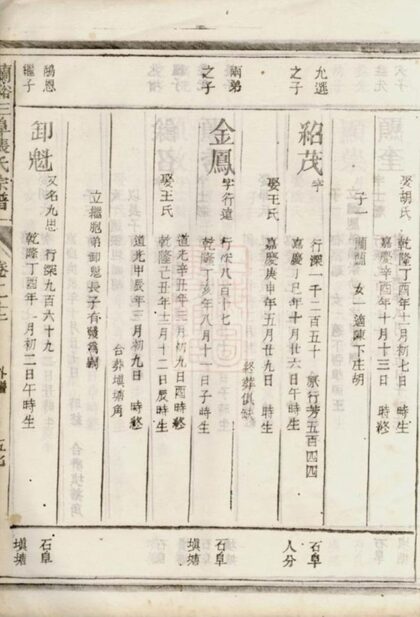 娶胡氏
乾隆丁酉年十一月初二日 時生
嘉慶辛酉年十月十三日 時終
子一
蘭開
女一適陳下庄胡
允選
之子
紹茂
字
行深一千二百五十
派行芳五百四四
嘉慶丁巳年十月廿六日午時生
娶王氏
嘉慶庚申年五月廿九日 時生
終葬俱缺
石阜
人分
爾弟
之子
金鳳
字行遠
行深八百十七
乾隆丁亥年八月十一日子時生
道光辛丑年三月初九日酉時終
娶王氏
乾隆己丑年十二月十二日辰時生
道光甲辰年三月初九日 時終
合葬塡塘角
立繼胞弟卸魁長子有
石阜
塡塘
關恩
繼子
卸魁
又名九思
行深九百六十九
乾隆丁酉年一月初二日午時生
石阜
塡塘
蘭谿三阜張氏宗譜
卷之十二
外
五七